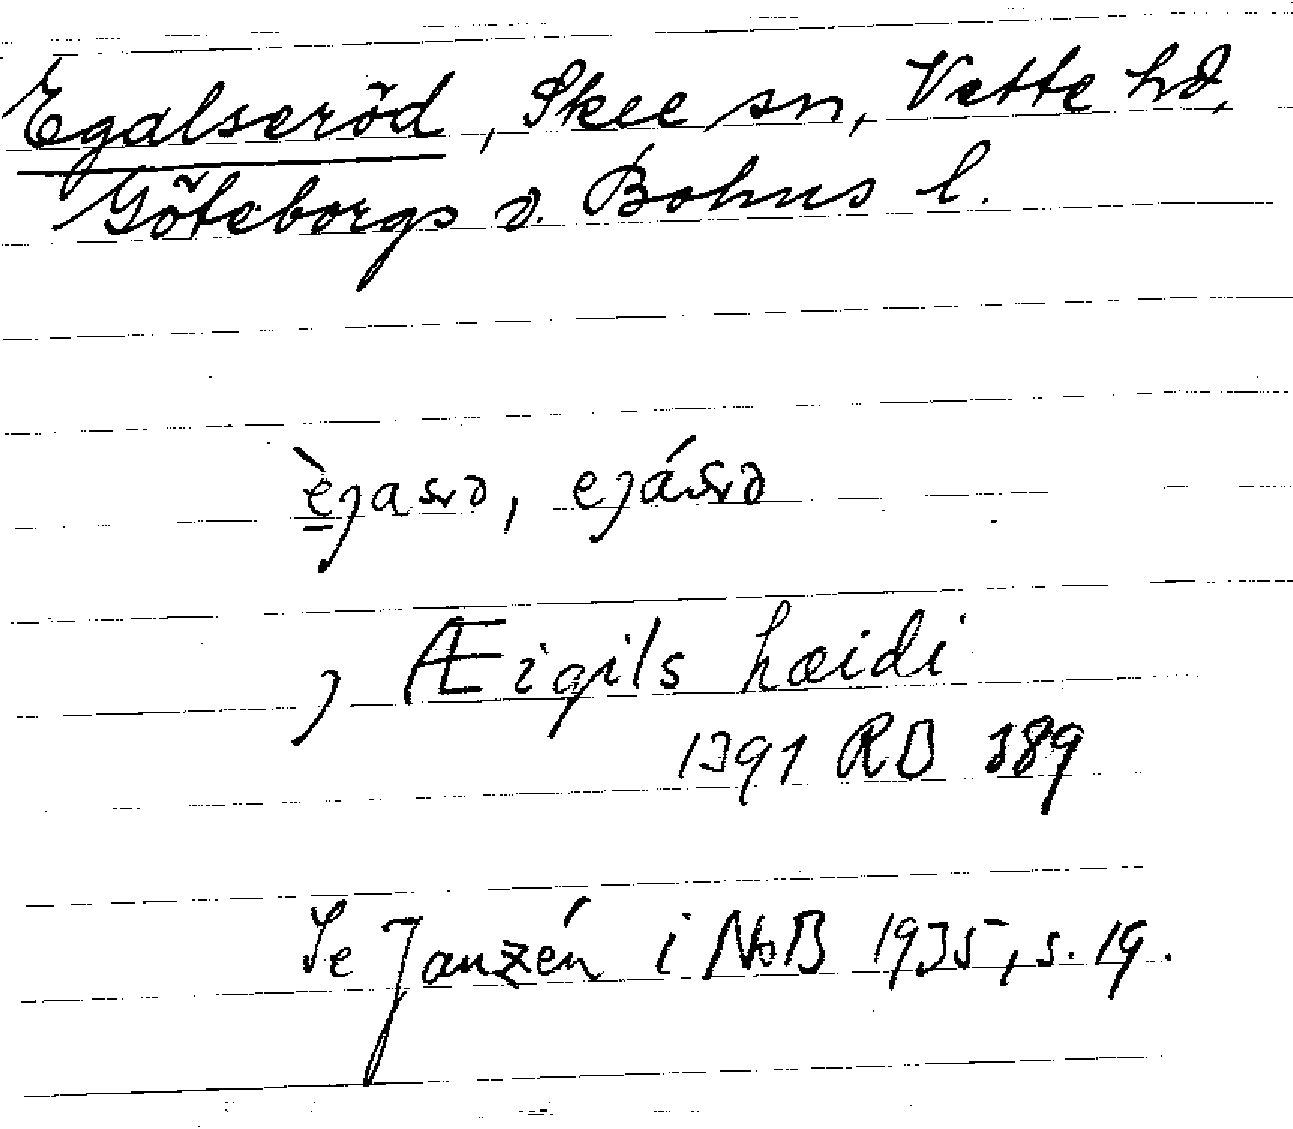 Egalseröd, Skee sn, Vette hd,
Göteborgs o. Bohus l.
i Æigils hæidi
1391 RB 389
Se Janzén i NoB 1935, s. 19.